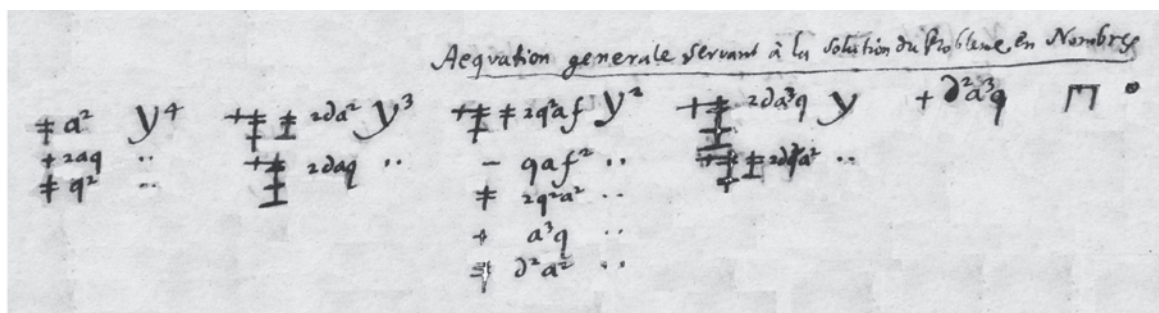 Aequation generale servant à la solution du Probleme en Nombres
⧧ a² y⁴ +⧧ ⧧ 2∂a² y³ +⧧ ⧧ 2q²af y² +⧧ 2∂a³q y + ∂²a³q ⊓ 0
+ 2aq .. +⧧ 2∂aq .. − qaf² .. ..
⧧ q² .. ⧧ 2q²a² ..
+ a³q ..
⧧ ∂²a² ..